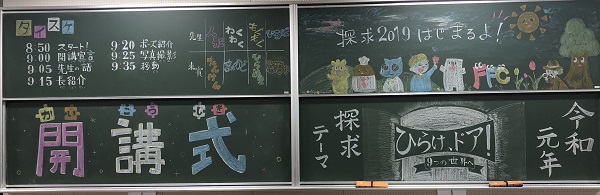 タイスケ
8:50 スタート!
9:00 開講宣言
9:05 先生の話
9:15 長紹介
9:20 ポーズ紹介
9:25 写真撮影
9:35 移動
先生
わくわく
もくもく
来賓
探求2019はじまるよ!
FFC
開講式
探求テーマ
ひらけ、ドア!
9つの世界へ
令和元年